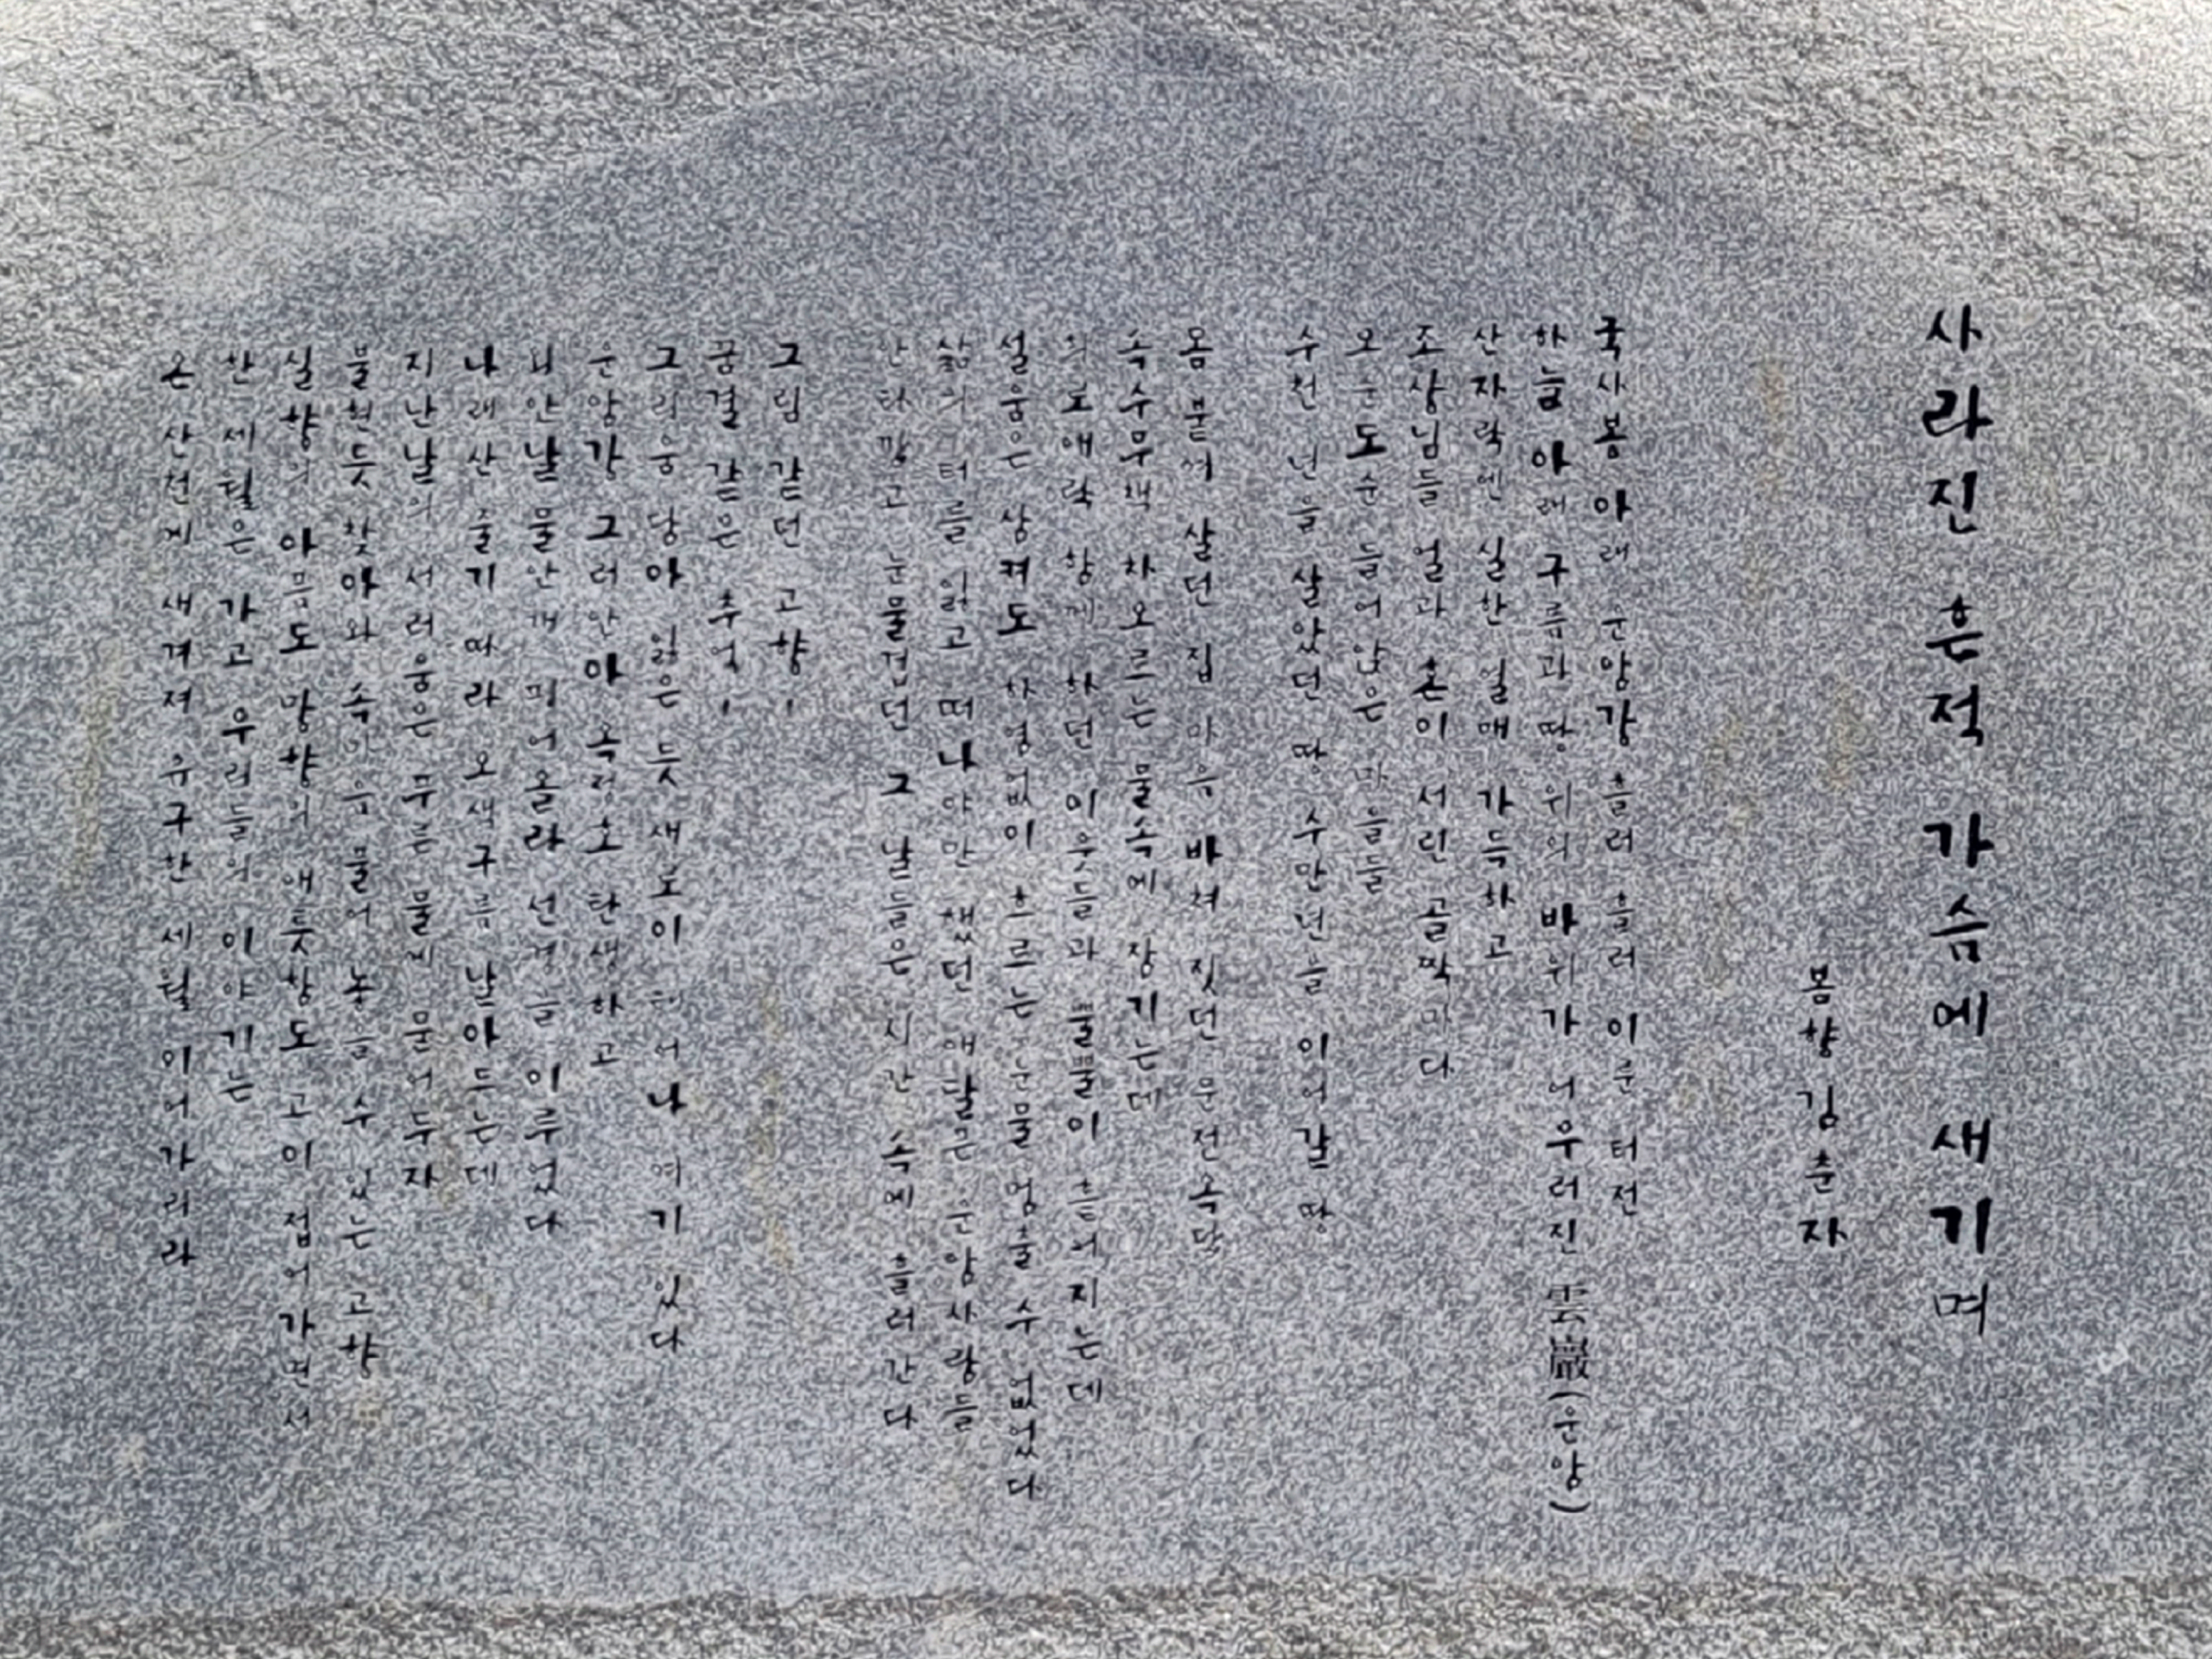 사라진 흔적 가슴에 새기며
봄향 김춘자
국사봉 아래 운암강 흘러 흘러 이룬 터전
하늘 아래 구름과 땅 위의 바위가 어우러진 雲巖(운암)
산자락엔 실한 열매 가득하고
조상님들 얼과 혼이 서린 골짝마다
오순도순 들어앉은 마을들
수천 년을 살았던 땅 수만년을 이어갈 땅
몸 붙여 살던 집 마음 바쳐 짓던 문전옥답
속수무책 차오르는 물속에 잠기는데
희로애락 함께 하던 이웃들과 뿔뿔이 흩어지는데
설움은 삼켜도 하염없이 흐르는 눈물 멈출 수 없었다
삶의 터를 잃고 떠나야만 했던 애달픈 운암사람들
안타깝고 눈물겹던 그 날들은 시간 속에 흘러간다
그림 같던 고향,
꿈결 같은 추억,
그리움 담아 잃은 듯 새로이 태어나 여기 있다
운암강 그러안아 옥정호 탄생하고
뇌안날 물안개 피어올라 선경을 이루었다
나래산 줄기 따라 오색구름 날아드는데
지난날의 서러움은 푸른 물에 묻어두자
불현듯 찾아와 속마음 풀어 놓을 수 있는 고향
실향의 아픔도 망향의 애틋함도 고이 접어가면서
한 세월은 가고 우리들의 이야기는
온 산천에 새겨져 유구한 세월 이어가리라